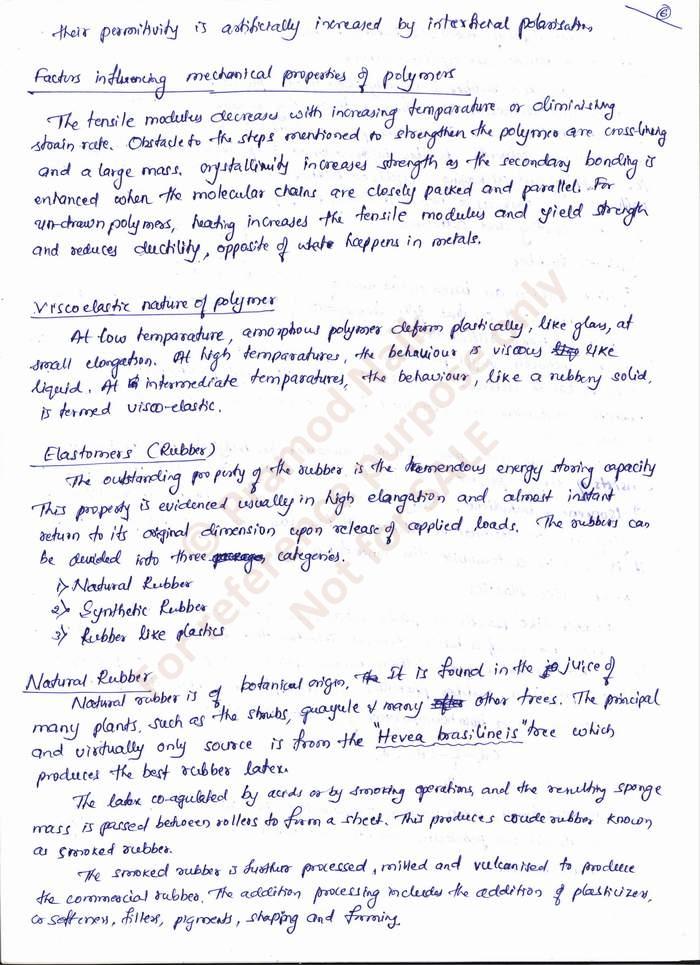 6
their permitivity is artificially increased by interfacial polarisation
Factors influencing mechanical properties of polymers
The tensile modulus decreases with increasing temparature or diminishing
strain rate. Obstacle to the steps mentioned to strengthen the polymer are cross-linking
and a large mass. crystallinity increases strength as the secondary bonding is
enhanced when the molecular chains are closely packed and parallel. For
un-drawn polymers, heating increases the tensile modulus and yield strength
and reduces ductility, opposite of what happens in metals.
Viscoelastic nature of polymer
At low temparature, amorphous polymer deform plastically, like glass, at
small elongation. At high temparatures, the behaviour is viscous like
liquid. At intermediate temparatures, the behaviour, like a rubbery solid,
is termed visco-elastic.
Elastomers (Rubber)
The outstanding property of the rubber is the tremendous energy storing capacity
This property is evidenced usually in high elangation and almost instant
return to its original dimension upon release of applied loads. The rubbers can
be devided into three categories.
1) Natural Rubber
2) Synthetic Rubber
3) Rubber like plastics
Natural Rubber
Natural rubber is of botanical origin. It is found in the juice of
many plants, such as the shrubs, guayule & many other trees. The principal
and virtually only source is from the "Hevea brasilineis" tree which
produces the best rubber latex.
The latex co-agulated by acids or by smoking operations, and the resulting sponge
mass is passed between rollers to form a sheet. This produces crude rubber known
as smoked rubber.
The smoked rubber is further processed, milled and vulcanised to produce
the commercial rubber. The addition processing includes the addition of plasticizers,
or softeners, fillers, pigments, shaping and forming.
© Pramod Naik
For reference purpose only
Not for SALE